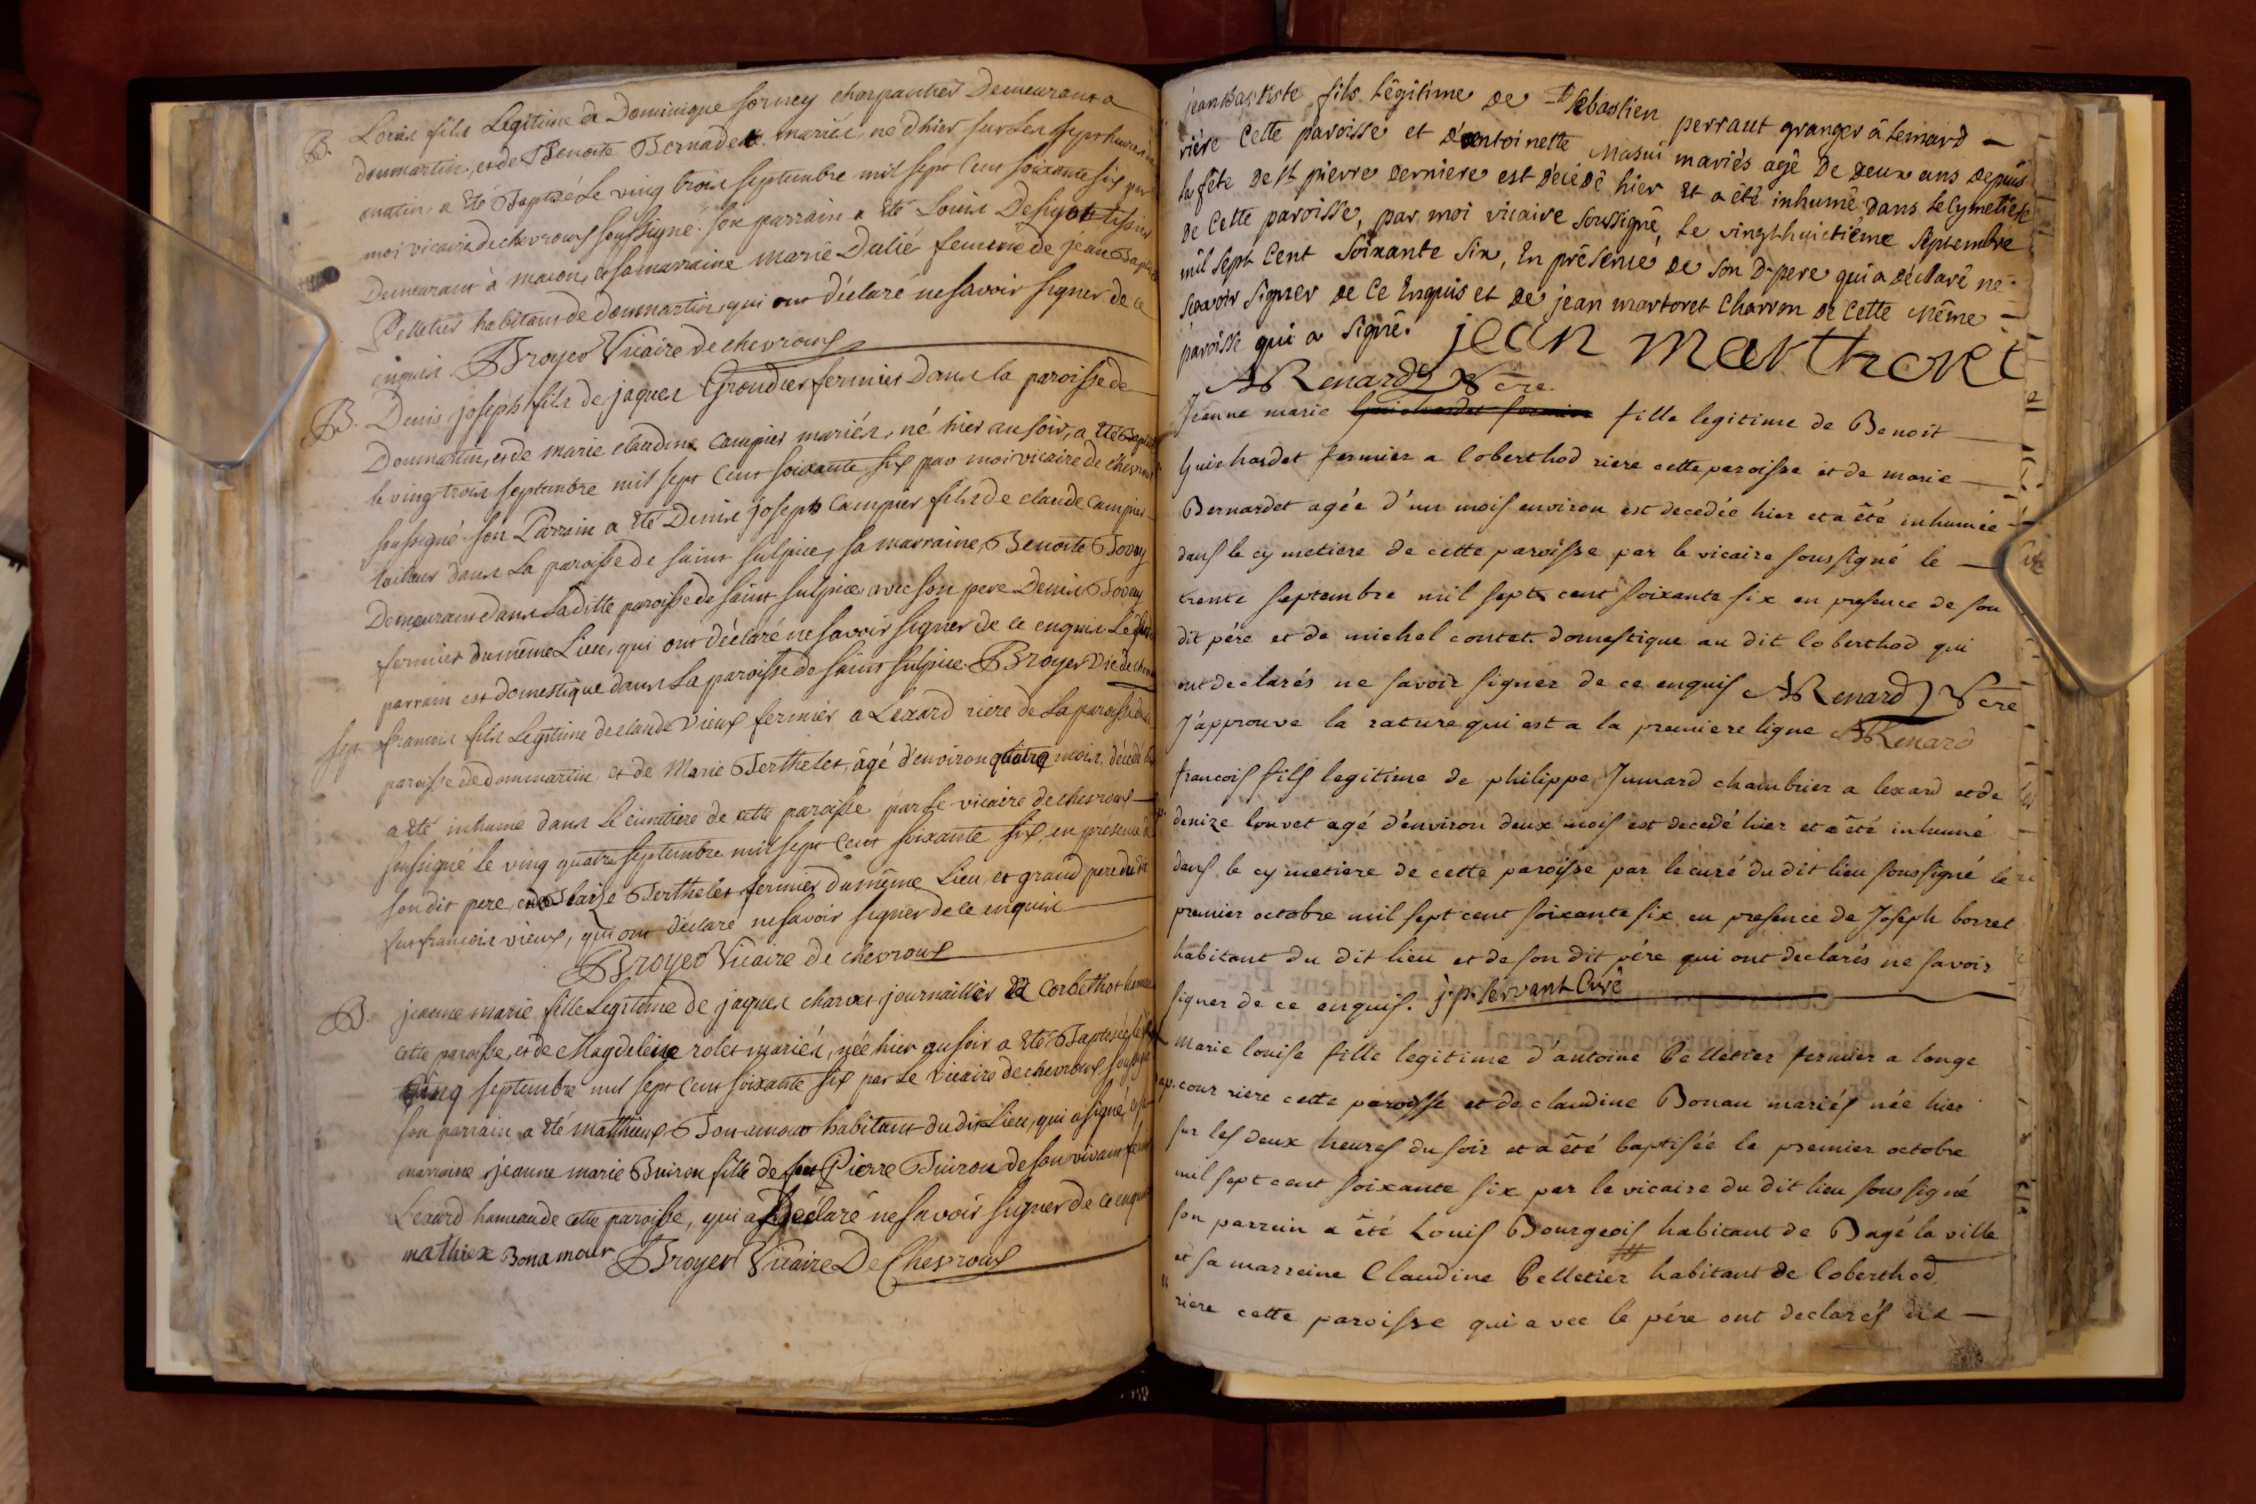 B. Louis fils Légitime de Dominique forney charpantier Demeurant a
dommartin, et de Benoite Bernadet mariés, né d'hier sur les sept heures du
matin, a été Baptisé Le ving trois septembre mil sept Cent soixante six par
moi vicaire de chevroux soussigné. son parrain a été Louis Tissier
Demeurant à macon, et sa marraine Marie Dulié femme de jéan Baptiste
Pelletier habitant de dommartin, qui ont déclaré ne savoir signer de ce
enquis. Broyer Vicaire de chevroux
B. Denis joseph fils de jaques Grondier fermier Dans la paroisse de
Dommartin, et de marie claudine Campier mariés, né hier au soir, a été Baptisé
le ving trois septembre mil sept Cent soixante six par moi vicaire de chevroux
soussigné. son Parrain a été Denis joseph Campier fils de claude Campier
tailleur dans La paroisse de saint sulpice, sa marraine, Benoite Bovay
Demeurant dans Laditte paroisse de saint sulpice avec son pere Denis Bovay
fermier du même Lieu, qui ont déclaré ne savoir signer de ce enquis. Le
parrain est domestique dans La paroisse de saint sulpice. Broyer Vic de chevroux
Sep. francois fils Légitime de claude Vieux fermier a Lexard riere de La paroisse
paroisse de dommartin et de Marie Berthelet, âgé d'environ quatre mois, décédé
a été inhumé dans Le cimetiere de cette paroisse par Le vicaire de chevroux
soussigné le ving quatre septembre mil sept Cent soixante six, en presence de
son dit pere, et de Blaise Berthelet fermier du même Lieu, et grand pere du dit
francois vieux, qui ont déclaré ne savoir signer de ce enquis
Broyer Vicaire de chevroux
B. jeanne marie fille Légitime de jaques charvet journaillier de Corbethot
cette paroisse, et de Magdeleine rolet mariés, née hier au soir a été Baptisée le
cinq septembre mil sept Cent soixante six par Le vicaire de chevroux soussigné
son parrain a été mathieux Bonamour habitant du dit Lieu, qui a signé, et sa
marraine jeanne marie Buiron fille de feu Pierre Buiron de son vivant
Lexard hameau de cette paroisse, qui a déclaré ne savoir signer de ce enquis
mathiex Bonamour Broyer Vicaire De Chevroux
jean Baptiste fils Légitime de Sébastien perraut granger à Lemard
rière Cette paroisse et d'antoinette Masui mariés agé De Deux ans depuis
la fête de st pierre dernière est décédé hier et a été inhumé dans le Cymetiere
de Cette paroisse, par moi vicaire soussigné, Le vingthuictième septembre
mil sept Cent soixante six, En présence de son D. pere qui a déclaré ne
sçavoir signer de Ce Enquis et de jean martoret Charron de Cette Même
paroisse qui a Signé. jean marthoret
A Renard Vcre
Jeanne marie fille legitime de Benoit
Guichardet fermier a loberthod riere cette paroisse et de marie
Bernardet agée d'un mois environ est decedée hier et a été inhumée
dans le cymetiere de cette paroisse par le vicaire soussigné le
trente septembre mil sept cent soixante six en presence de son
dit père et de michel contet domestique au dit loberthod qui
ont declarés ne savoir signer de ce enquis A Renard Vcre
J'approuve la rature qui est a la premiere ligne A Renard
francois fils legitime de philippe Jumard chambrier a lexard et de
denize louvet agé d'environ deux mois est decedé hier et a été inhumé
dans le cymetiere de cette paroisse par le curé du dit lieu soussigné le
premier octobre mil sept cent soixante six en presence de Joseph borret
habitant du dit lieu et de son dit père qui ont declarés ne savoir
signer de ce enquis. j. p. servant Curé
Marie louise fille legitime d'antoine Pelletier fermier a longe
cour riere cette paroisse et de claudine Bonau mariés née hier
sur les deux heures du soir et a été baptisée le premier octobre
mil sept cent soixante six par le vicaire du dit lieu soussigné
son parrein a été Louis Bourgeois habitant de Bagé la ville
et sa marreine Claudine Pelletier habitant de loberthod
riere cette paroisse qui avec le père ont declarés ne